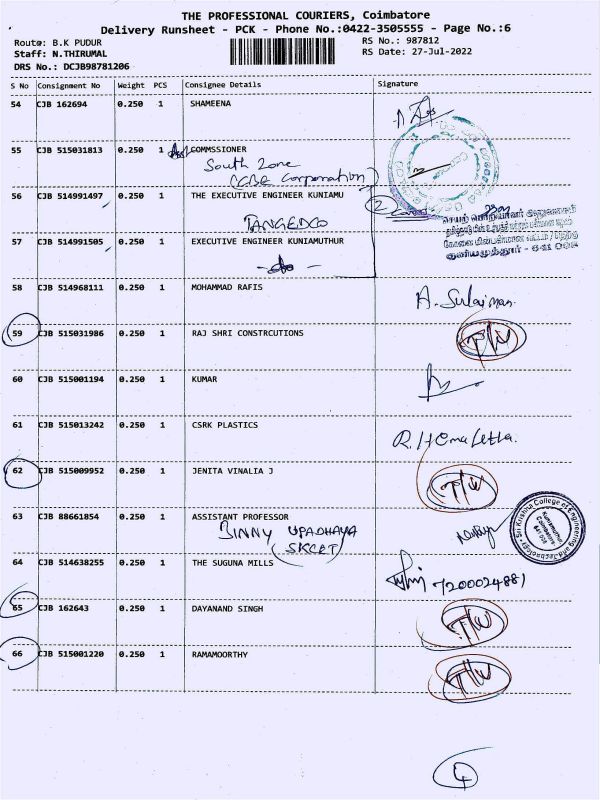 THE PROFESSIONAL COURIERS, Coimbatore
Delivery Runsheet - PCK - Phone No.:0422-3505555 - Page No.:6
Route: B.K PUDUR
RS No.: 987812
Staff: N.THIRUMAL
RS Date: 27-Jul-2022
DRS No.: DCJB98781206
S No Consignment No Weight PCS Consignee Details Signature
54 CJB 162694 0.250 1 SHAMEENA
55 CJB 515031813 0.250 1 Asst COMMSSIONER
South Zone
(CBE Corporation)
56 CJB 514991497 0.250 1 THE EXECUTIVE ENGINEER KUNIAMU
TANGEDCO
57 CJB 514991505 0.250 1 EXECUTIVE ENGINEER KUNIAMUTHUR
குனியமுத்தூர் - 641 008
58 CJB 514968111 0.250 1 MOHAMMAD RAFIS A. Sulaiman.
59 CJB 515031986 0.250 1 RAJ SHRI CONSTRCUTIONS T/W
60 CJB 515001194 0.250 1 KUMAR
61 CJB 515013242 0.250 1 CSRK PLASTICS R. Hemaletha.
62 CJB 515009952 0.250 1 JENITA VINALIA J T/W
63 CJB 88661854 0.250 1 ASSISTANT PROFESSOR
BINNY UPADHAYA
(SKCET)
Sri Krishna College of Engineering and Technology
Kuniamuthur
Coimbatore
641 008
64 CJB 514638255 0.250 1 THE SUGUNA MILLS 7200024881
65 CJB 162643 0.250 1 DAYANAND SINGH T/W
66 CJB 515001220 0.250 1 RAMAMOORTHY T/W
4